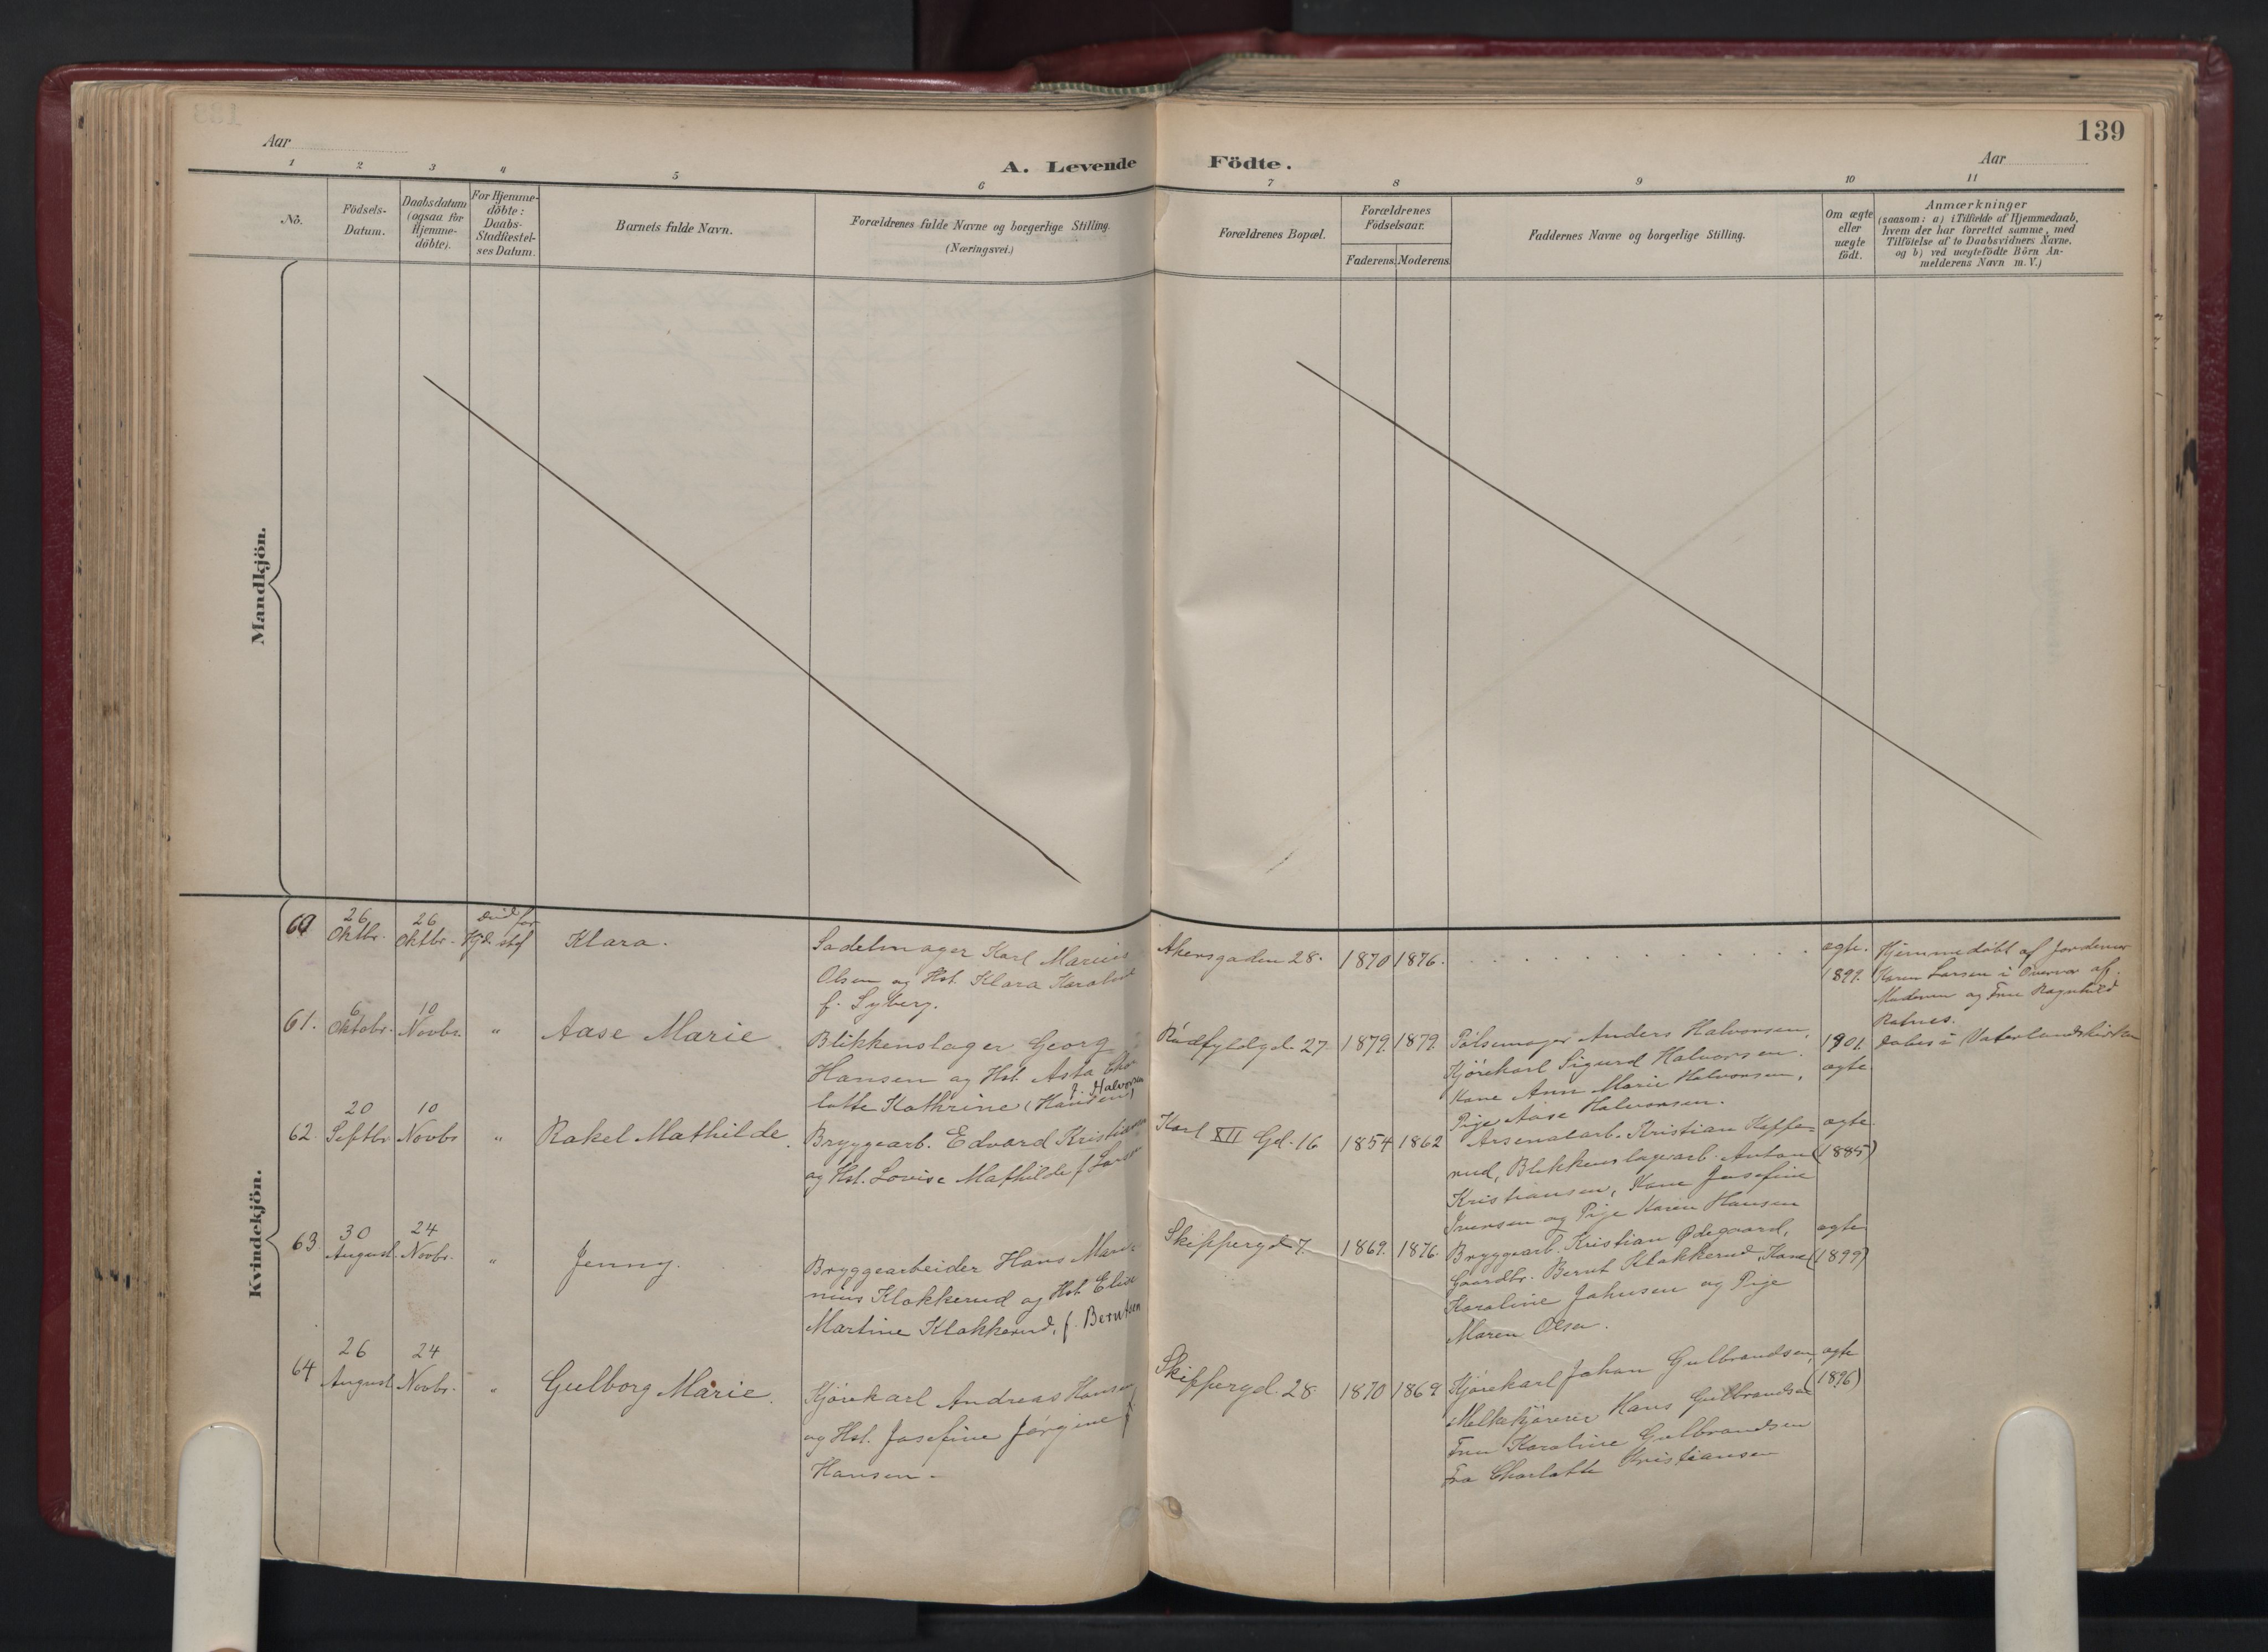 139
Aar
A. Levende Födte.
Aar
1 2 3 4 5 6 7 8 9 10 11
No.
Födsels-
Datum.
Daabsdatum
(ogsaa for
Hjemme-
döbte).
For Hjemme-
döbte:
Daabs-
Stadfæstel-
ses Datum.
Barnets fulde Navn.
Forældrenes fulde Navne og borgerlige Stilling.
(Næringsvei.)
Forældrenes Bopæl.
Forældrenes
Födselsaar.
Faderens. Moderens.
Faddernes Navne og borgerlige Stilling.
Om ægte
eller
uægte
födt.
Anmærkninger
(saasom: a) i Tilfælde af Hjemmedaab,
hvem der har forrettet samme, med
Tilföielse af to Daabsvidners Navne,
og b) ved uægtefödte Börn An-
melderens Navn m. V.)
Mandkjön.
Kvindekjön.
60
26
Oktbr.
26
Oktbr.
död for
Hjd. stf
Klara.
Sadelmager Karl Marius
Olsen og Hst. Klara
f. Syberg.
Akersgaden 28.
1870 1876.
ægte.
1899.
Hjemmedöbt af Jordemor
Karen Larsen i Overvær af
Moderen og Fru Ragnhild
61.
6
Oktobr.
10
Novbr.
"
Aase Marie
Blikkenslager Georg
Hansen og Hst. Asta Cha
lotte Kathrine (Hansen)
f. Halvorsen
Rödfyldgd. 27
1879. 1879.
Pölsemager Anders Halvorsen,
Kjörekarl Sigurd Halvorsen.
Kone Ann Marie Halvorsen,
Pige Aase Halvorsen.
1901.
ægte
Döbt i Vaterlandskirken
62.
20
Septbr
10
Novbr
"
Rakel Mathilde.
Bryggearb. Edvard Kristiansen
og Hst. Lovise Mathilde f. Larsen
Karl XII Gd. 16
1854 1862
Arsenalarb. Kristian Keffe-
rud, Blikkenslagerarb. Anton
Kristiansen, Kone Josefine
Iversen og Pige Karen Hansen
ægte
(1885)
63
30
August.
24
Novbr.
"
Jenny.
Bryggearbeider Hans Mari-
nius Klokkerud og Hst. Elise
Martine Klokkerud, f. Berntsen
Skippergd 7.
1869. 1876.
Bryggearb. Kristian Ødegaard,
Gaardbr. Bernt Klokkerud, Kone
Karoline Johnsen og Pige
Maren Olsen.
ægte
(1899)
64
26
August
24
Novbr.
"
Gulborg Marie.
Kjörekarl Andreas Hansen
og Hst. Josefine Jørgine f.
Hansen.
Skippergd. 28
1870 1869
Kjörekarl Johan Gulbrandsen,
Melkekjörer Hans Gulbrandsen
Fru Karoline Gulbrandsen
Fru Charlotte Kristiansen
ægte
(1896)